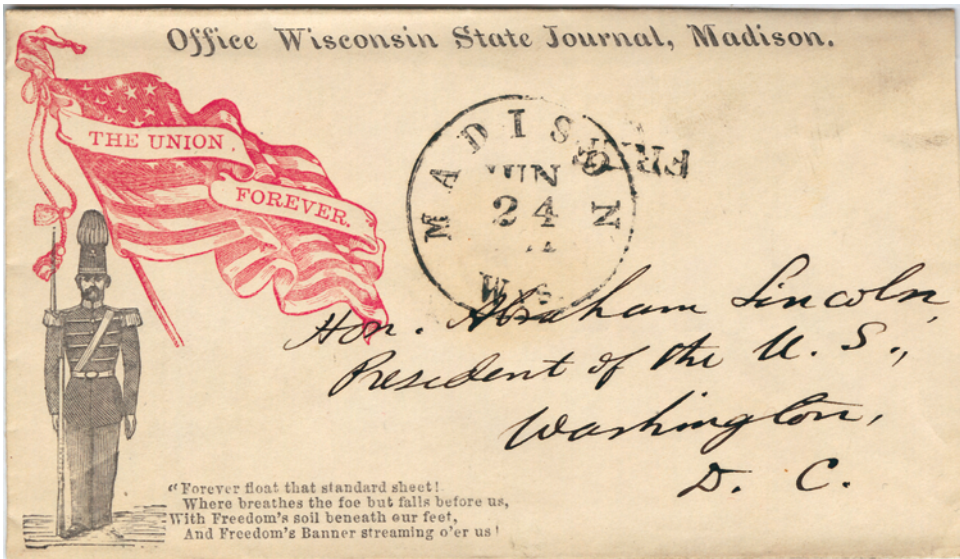 Office Wisconsin State Journal, Madison.
THE UNION
FOREVER.
MADISON
JUN
24
WIS.
FREE
Hon. Abraham Lincoln,
President of the U. S.,
Washington,
D. C.
"Forever float that standard sheet!
Where breathes the foe but falls before us,
With Freedom's soil beneath our feet,
And Freedom's Banner streaming o'er us!